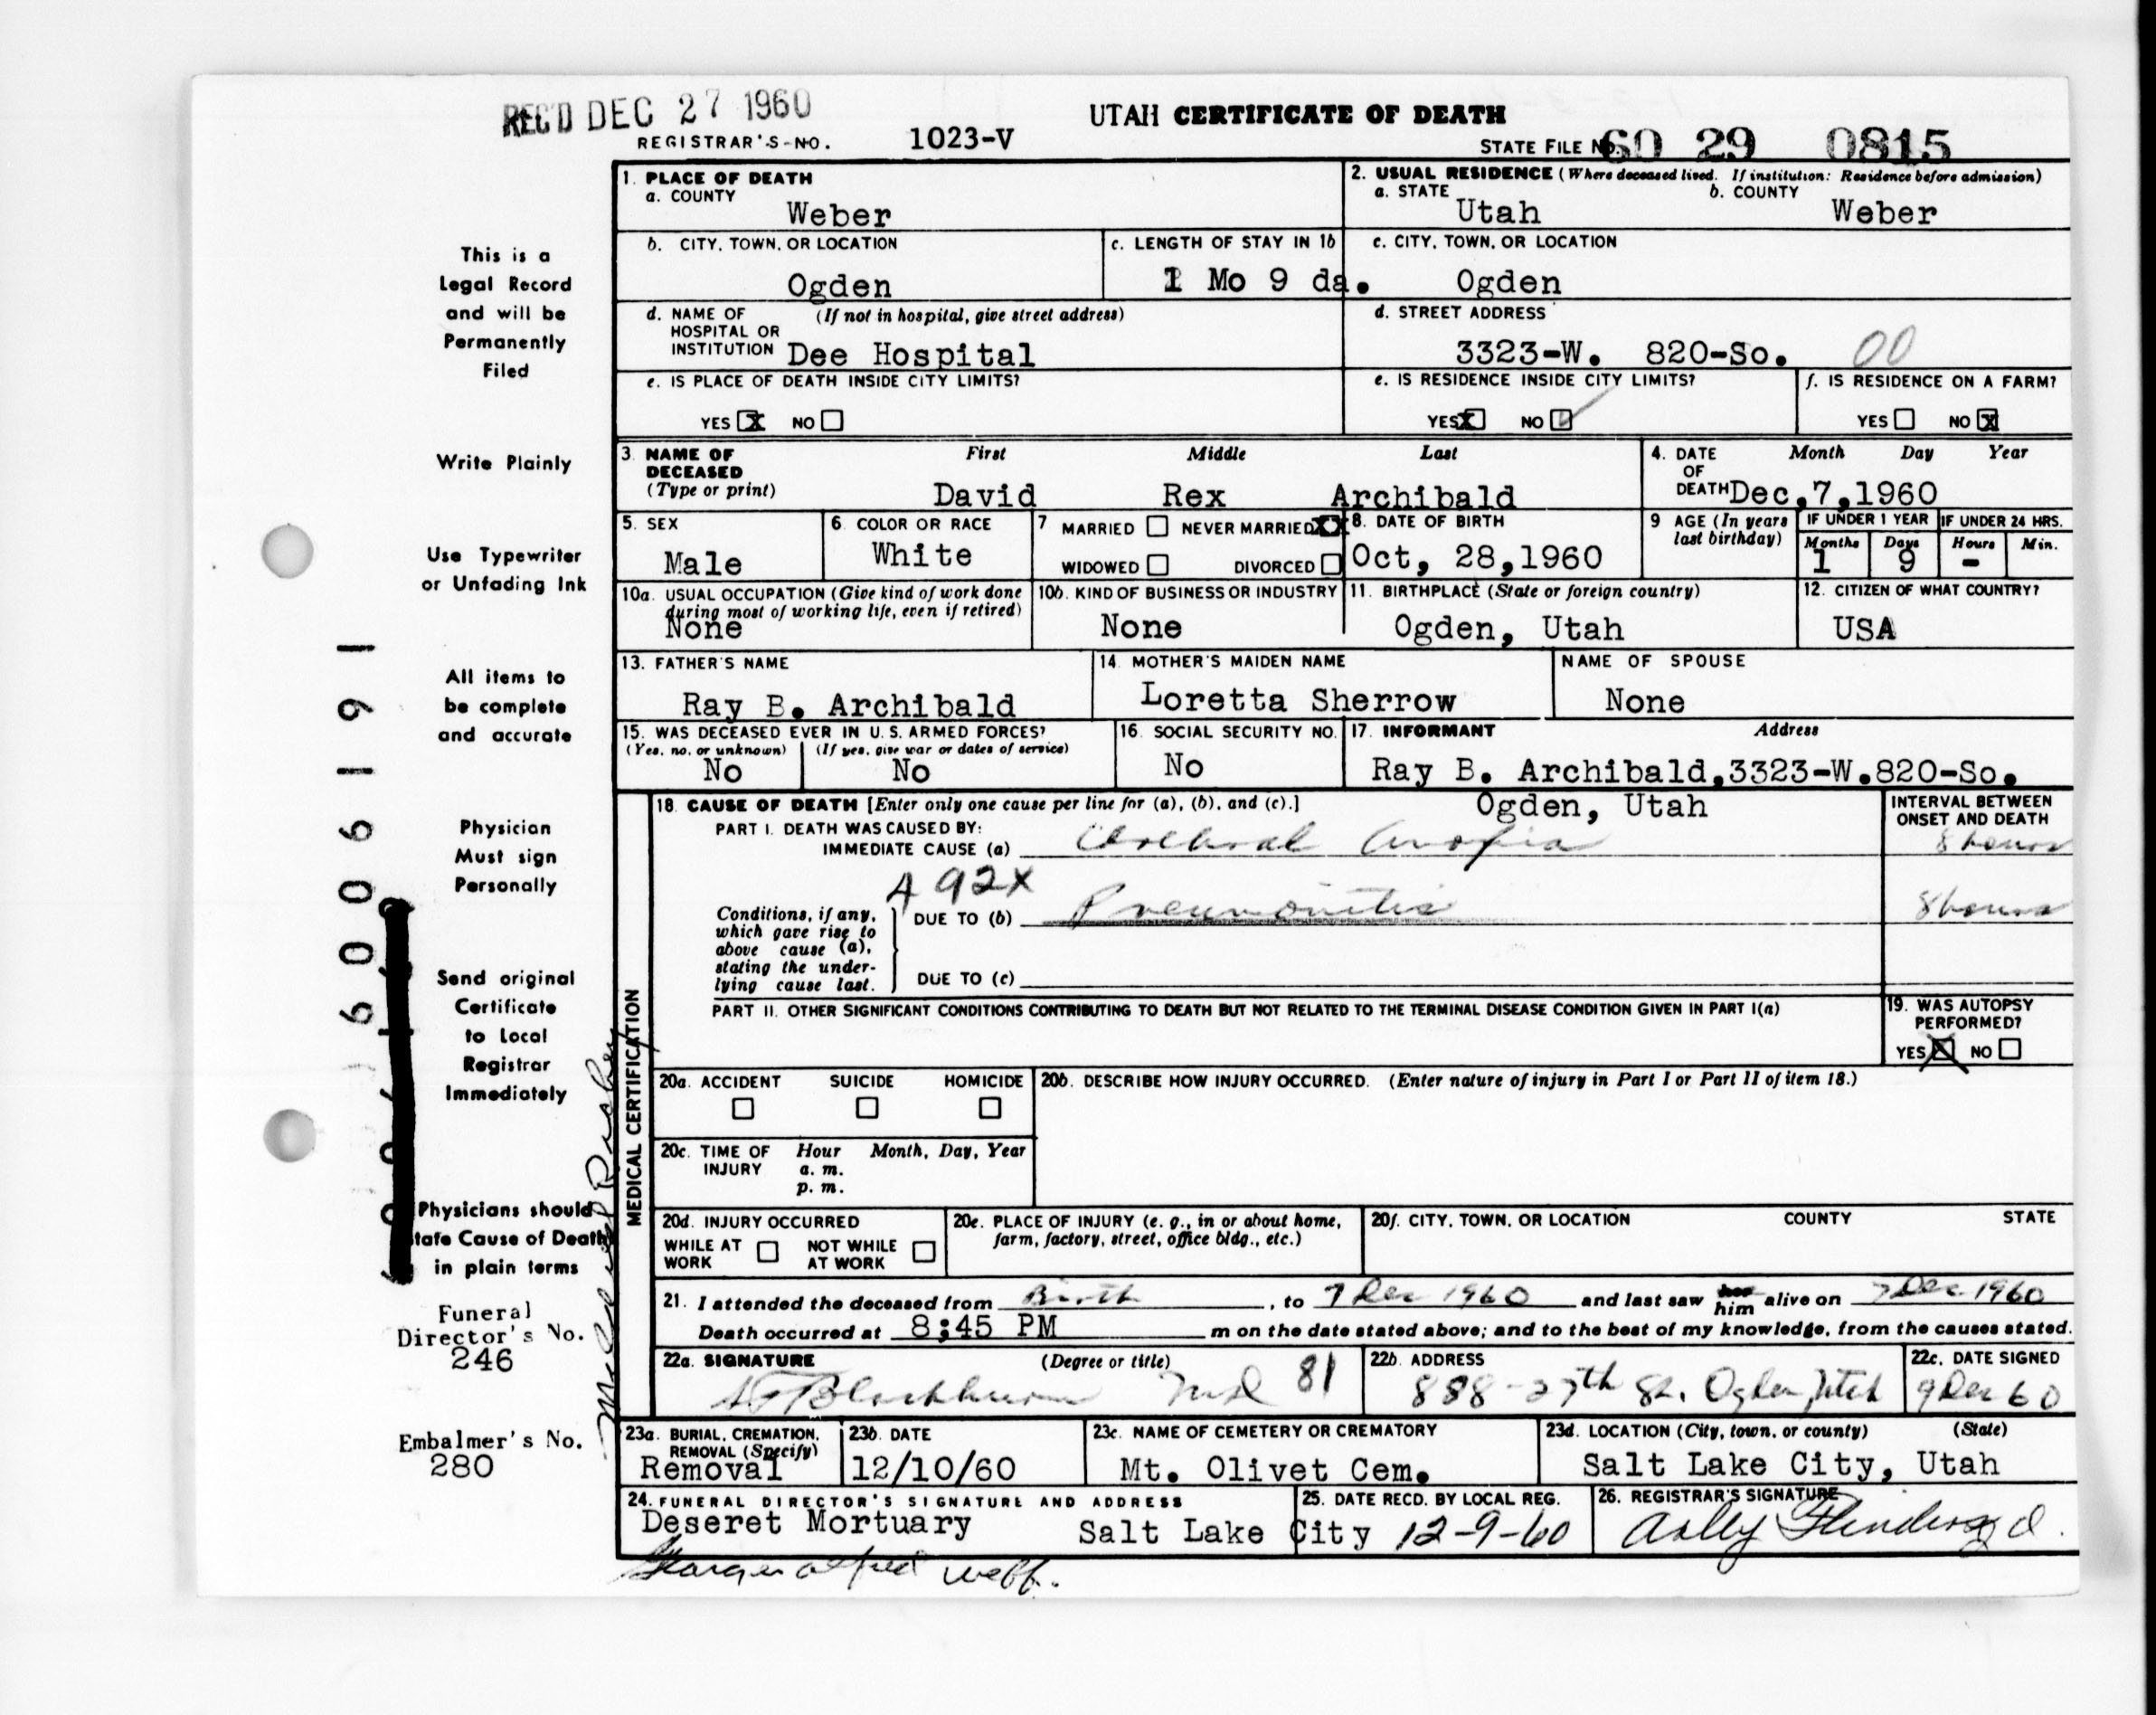 REC'D DEC 27 1960
UTAH CERTIFICATE OF DEATH
REGISTRAR'S-NO. 1023-V
STATE FILE No. 60 29 0815
1. PLACE OF DEATH
a. COUNTY
Weber
2. USUAL RESIDENCE (Where deceased lived. If institution: Residence before admission)
a. STATE b. COUNTY
Utah Weber
b. CITY, TOWN, OR LOCATION
Ogden
c. LENGTH OF STAY IN 1b
1 Mo 9 da.
c. CITY, TOWN, OR LOCATION
Ogden
d. NAME OF (If not in hospital, give street address)
HOSPITAL OR
INSTITUTION Dee Hospital
d. STREET ADDRESS
3323-W. 820-So. 00
e. IS PLACE OF DEATH INSIDE CITY LIMITS?
YES X NO
e. IS RESIDENCE INSIDE CITY LIMITS?
YES X NO
f. IS RESIDENCE ON A FARM?
YES NO X
3. NAME OF DECEASED (Type or print)
First Middle Last
David Rex Archibald
4. DATE OF DEATH
Month Day Year
Dec,7,1960
5. SEX
Male
6. COLOR OR RACE
White
7 MARRIED NEVER MARRIED X
WIDOWED DIVORCED
8. DATE OF BIRTH
Oct, 28,1960
9 AGE (In years last birthday)
IF UNDER 1 YEAR IF UNDER 24 HRS.
Months Days Hours Min.
1 9 -
10a. USUAL OCCUPATION (Give kind of work done
during most of working life, even if retired)
None
10b. KIND OF BUSINESS OR INDUSTRY
None
11. BIRTHPLACE (State or foreign country)
Ogden, Utah
12. CITIZEN OF WHAT COUNTRY?
USA
13. FATHER'S NAME
Ray B. Archibald
14. MOTHER'S MAIDEN NAME
Loretta Sherrow
NAME OF SPOUSE
None
15. WAS DECEASED EVER IN U.S. ARMED FORCES?
(Yes, no, or unknown) (If yes, give war or dates of service)
No No
16. SOCIAL SECURITY NO.
No
17. INFORMANT Address
Ray B. Archibald,3323-W.820-So.
Ogden, Utah
MEDICAL CERTIFICATION
18. CAUSE OF DEATH [Enter only one cause per line for (a), (b), and (c).]
PART I. DEATH WAS CAUSED BY:
IMMEDIATE CAUSE (a) Cerebral Anoxia
INTERVAL BETWEEN
ONSET AND DEATH
8 hours
A 92X
Conditions, if any,
which gave rise to
above cause (a),
stating the under-
lying cause last.
DUE TO (b) Pneumonitis
8 hours
DUE TO (c)
PART II. OTHER SIGNIFICANT CONDITIONS CONTRIBUTING TO DEATH BUT NOT RELATED TO THE TERMINAL DISEASE CONDITION GIVEN IN PART I(a)
19. WAS AUTOPSY
PERFORMED?
YES X NO
20a. ACCIDENT SUICIDE HOMICIDE
20b. DESCRIBE HOW INJURY OCCURRED. (Enter nature of injury in Part I or Part II of item 18.)
20c. TIME OF INJURY
Hour Month, Day, Year
a. m.
p. m.
20d. INJURY OCCURRED
WHILE AT WORK NOT WHILE AT WORK
20e. PLACE OF INJURY (e. g., in or about home,
farm, factory, street, office bldg., etc.)
20f. CITY, TOWN, OR LOCATION COUNTY STATE
21. I attended the deceased from Birth, to 7 Dec 1960 and last saw her him alive on 7 Dec 1960
Death occurred at 8:45 PM m on the date stated above; and to the best of my knowledge, from the causes stated.
22a. SIGNATURE (Degree or title)
Blackburn MD 81
22b. ADDRESS
888-27th St. Ogden Utah
22c. DATE SIGNED
9 Dec 60
23a. BURIAL, CREMATION,
REMOVAL (Specify)
Removal
23b. DATE
12/10/60
23c. NAME OF CEMETERY OR CREMATORY
Mt. Olivet Cem.
23d. LOCATION (City, town, or county) (State)
Salt Lake City, Utah
24. FUNERAL DIRECTOR'S SIGNATURE AND ADDRESS
Deseret Mortuary Salt Lake City
25. DATE RECD. BY LOCAL REG.
12-9-60
26. REGISTRAR'S SIGNATURE
This is a
Legal Record
and will be
Permanently
Filed
Write Plainly
Use Typewriter
or Unfading Ink
All items to
be complete
and accurate
Physician
Must sign
Personally
Send original
Certificate
to Local
Registrar
Immediately
Physicians should
state Cause of Death
in plain terms
Funeral
Director's No.
246
Embalmer's No.
280
6006191